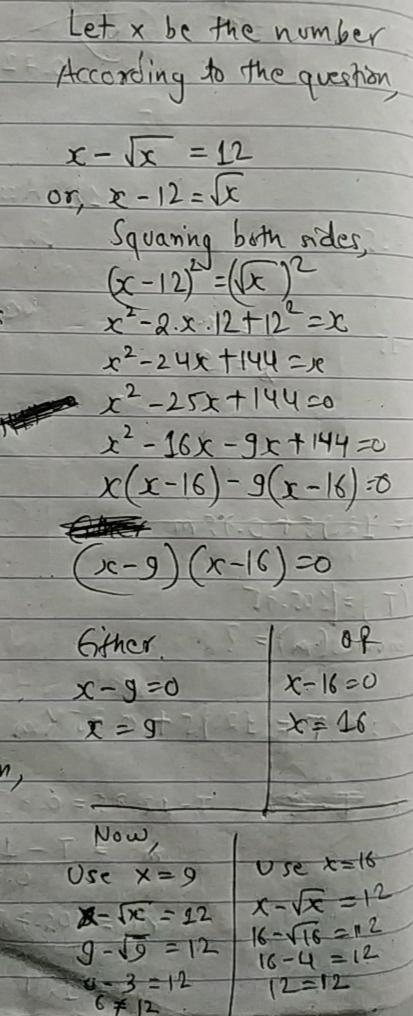 Let x be the number
According to the question,
x - √x = 12
or, x - 12 = √x
Squaring both sides,
(x-12)² = (√x)²
x² - 2.x.12 + 12² = x
x² - 24x + 144 = x
x² - 25x + 144 = 0
x² - 16x - 9x + 144 = 0
x(x-16) - 9(x-16) = 0
(x-9)(x-16) = 0
Either
x - 9 = 0
x = 9
or
x - 16 = 0
x = 16
Now,
Use x = 9
x - √x = 12
9 - √9 = 12
9 - 3 = 12
6 ≠ 12
Use x = 16
x - √x = 12
16 - √16 = 12
16 - 4 = 12
12 = 12